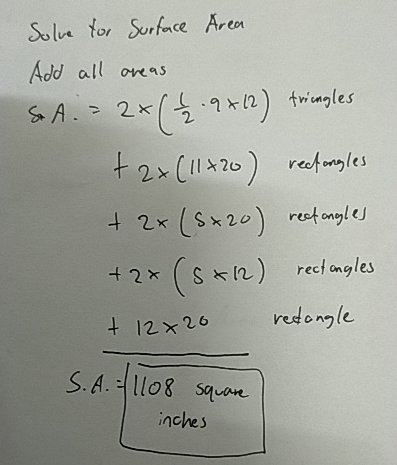 Solve for Surface Area
Add all areas
S.A. = 2 × (1/2 · 9 × 12) triangles
+ 2 × (11 × 20) rectangles
+ 2 × (5 × 20) rectangles
+ 2 × (5 × 12) rectangles
+ 12 × 20 rectangle
S.A. = 1108 square
inches